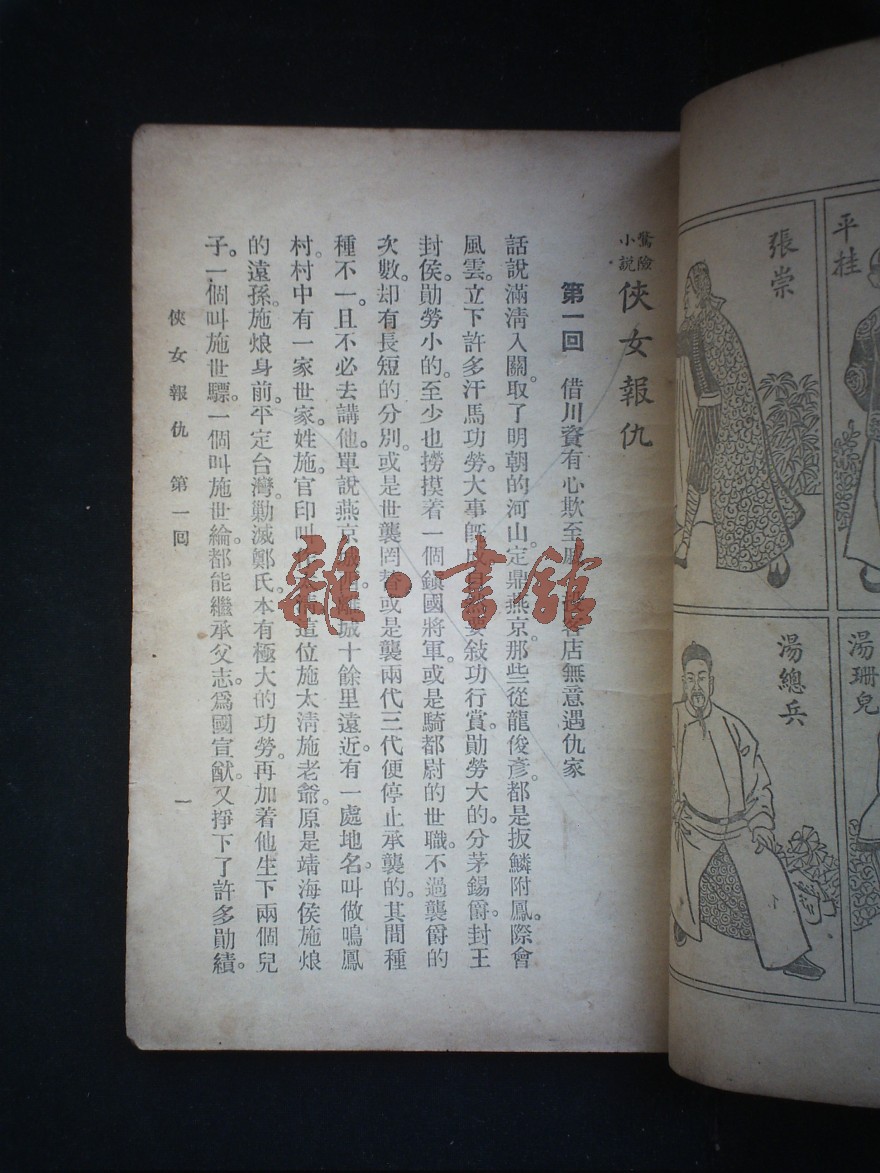 平桂
張崇
湯珊兒
湯總兵
驚險小說
俠女報仇
第一回 借川資有心欺至 店無意遇仇家
話說滿清入關。取了明朝的河山。定鼎燕京。那些從龍俊彥。都是扳鱗附鳳。際會
風雲。立下許多汗馬功勞。大事旣 要敍功行賞。勛勞大的。分茅錫爵。封王
封侯。勛勞小的。至少也撈摸着一個鎭國將軍。或是騎都尉的世職。不過襲爵的
次數。却有長短的分別。或是世襲罔替。或是襲兩代三代便停止承襲的。其間種
種不一。且不必去講他。單說燕京 城十餘里遠近。有一處地名。叫做鳴鳳
村。村中有一家世家。姓施。官印叫 這位施太淸施老爺。原是靖海侯施烺
的遠孫。施烺身前。平定台灣。勦滅鄭氏。本有極大的功勞。再加着他生下兩個兒
子。一個叫施世驃。一個叫施世綸。都能繼承父志。爲國宣猷。又掙下了許多勛績。
俠女報仇 第一回 一
雜·書館